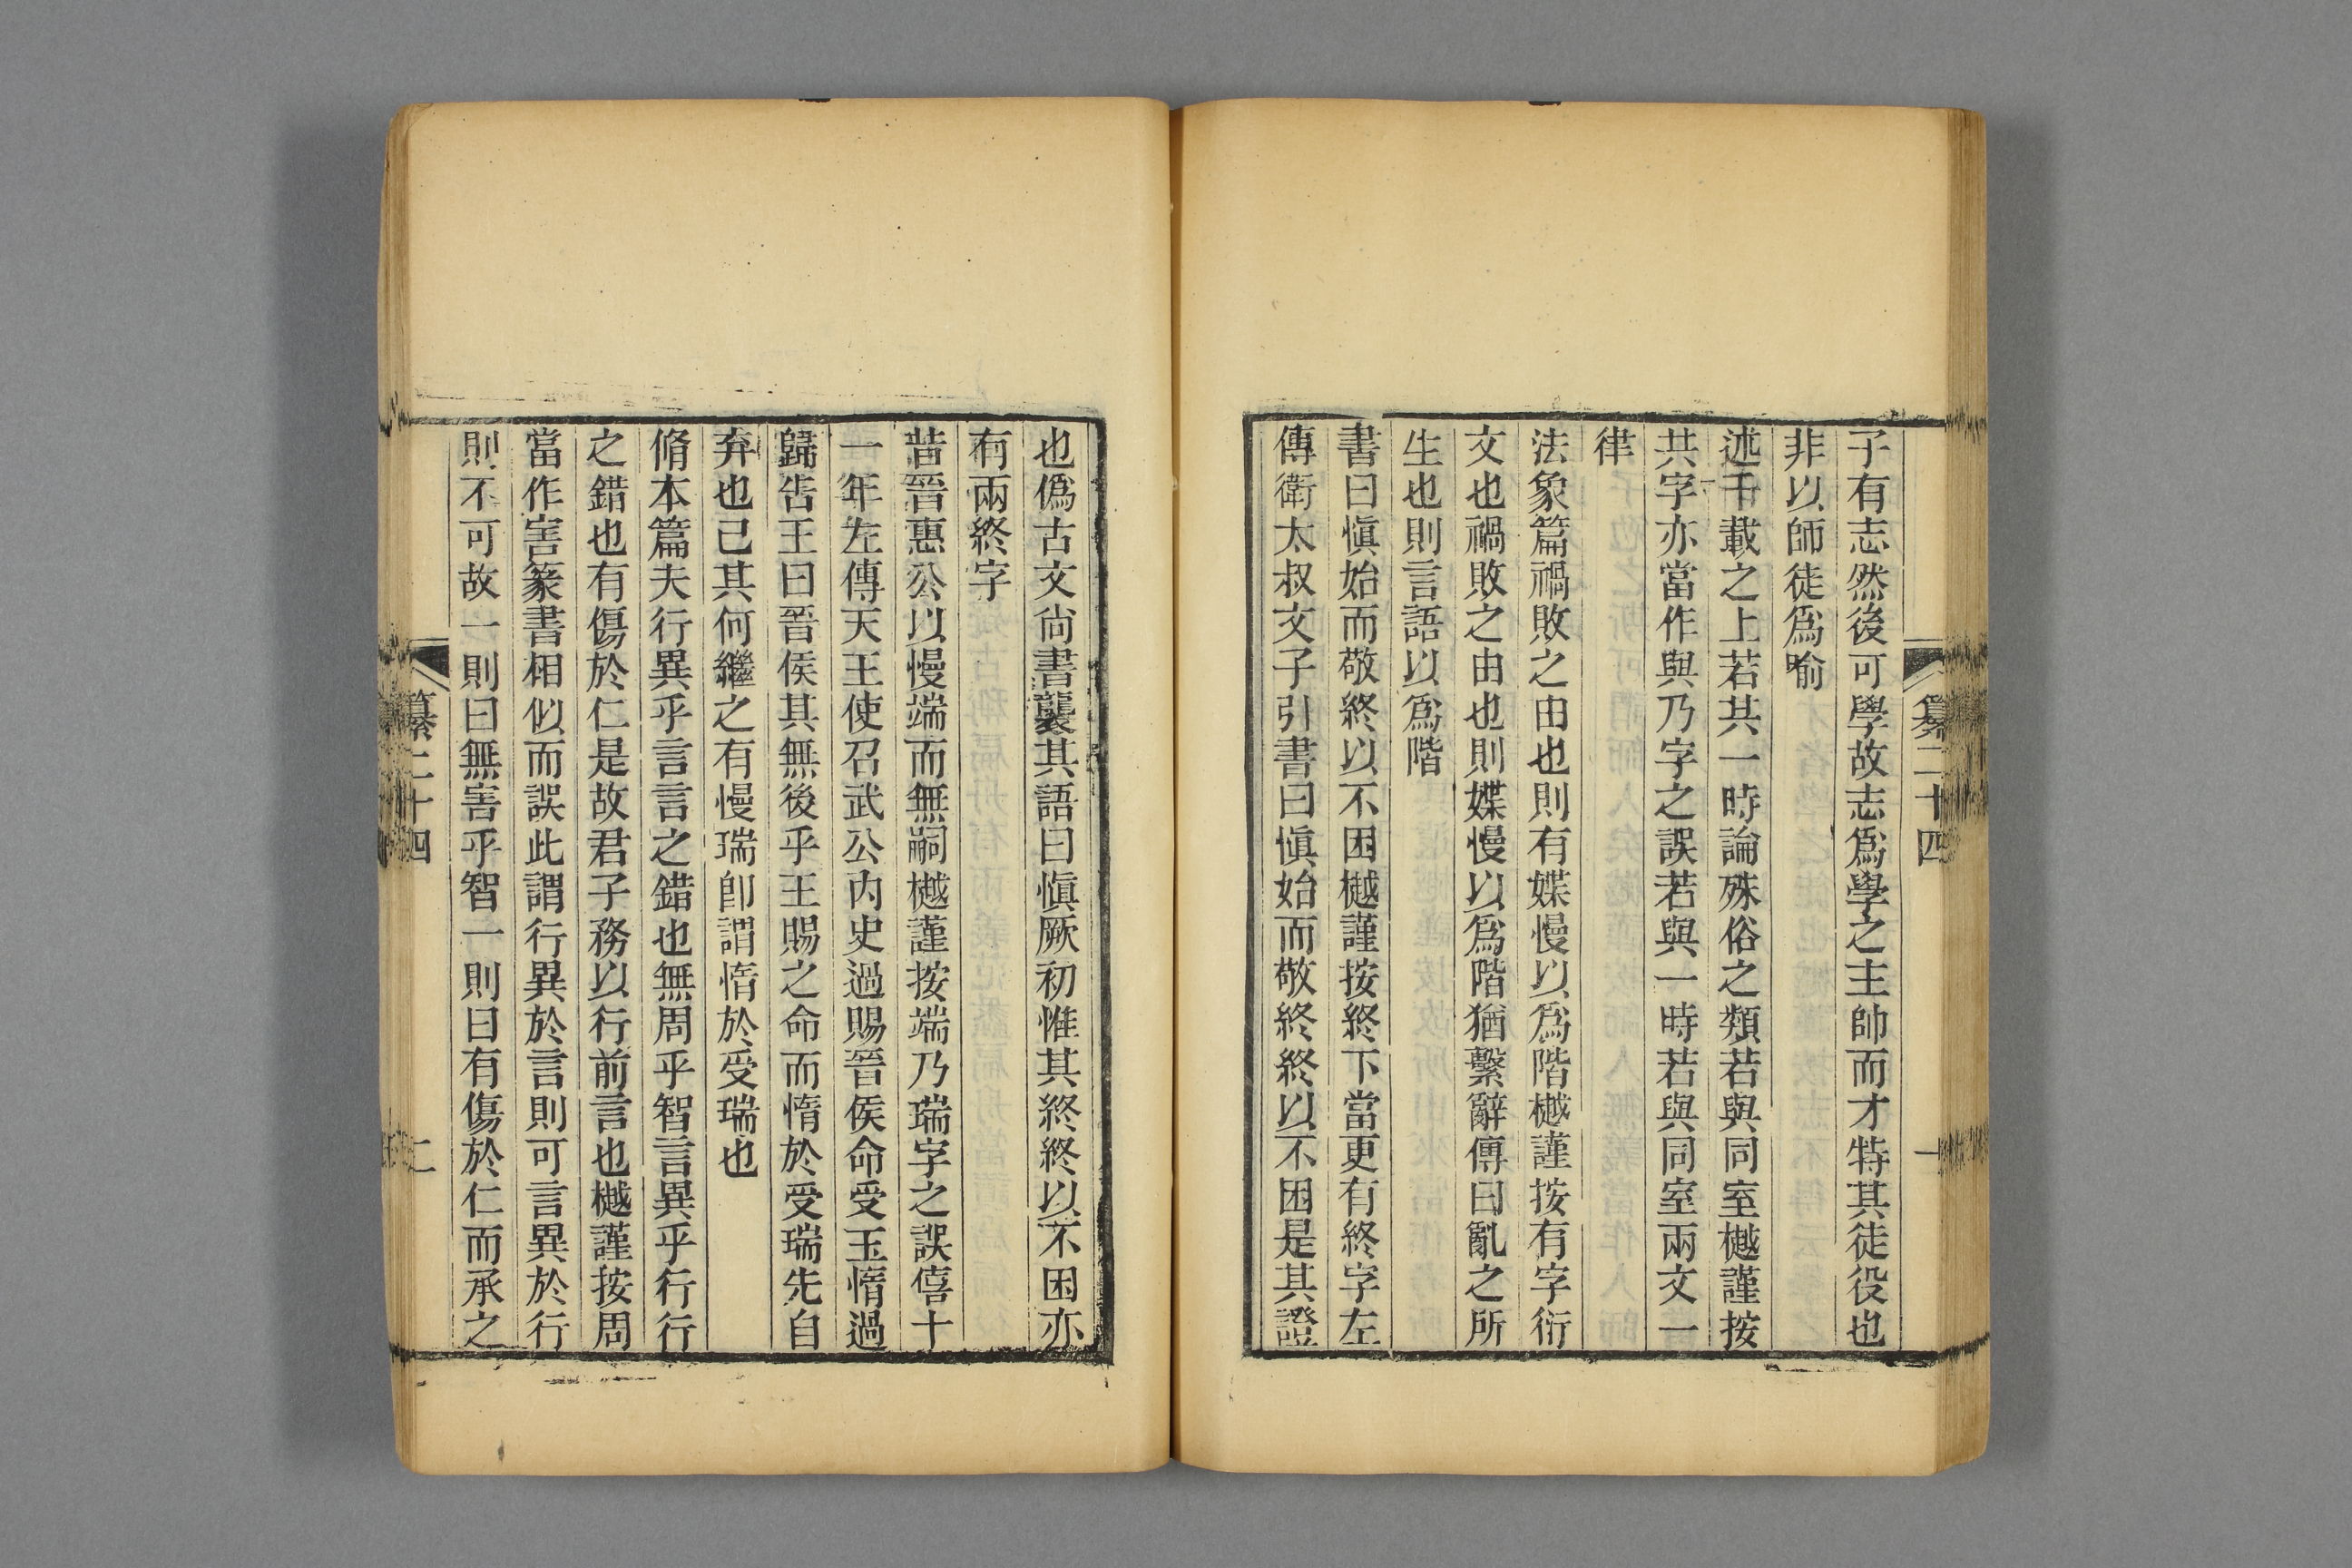 子有志然後可學故志爲學之主帥而才特其徒役也
非以師徒爲喻
述千載之上若共一時論殊俗之類若與同室樾謹按
共字亦當作與乃字之誤若與一時若與同室兩文一
律
法象篇禍敗之由也則有媟慢以爲階樾謹按有字衍
文也禍敗之由也則媟慢以爲階猶繫辭傳曰亂之所
生也則言語以爲階
書曰愼始而敬終以不困樾謹按終下當更有終字左
傳衛太叔文子引書曰愼始而敬終終以不困是其證
纂二十四
一
也僞古文尙書襲其語曰愼厥初惟其終終以不困亦
有兩終字
昔晉惠公以慢端而無嗣樾謹按端乃瑞字之誤僖十
一年左傳天王使召武公内史過賜晉侯命受玉惰過
歸告王曰晉侯其無後乎王賜之命而惰於受瑞先自
弃也已其何繼之有慢瑞卽謂惰於受瑞也
脩本篇夫行異乎言言之錯也無周乎智言異乎行行
之錯也有傷於仁是故君子務以行前言也樾謹按周
當作害篆書相似而誤此謂行異於言則可言異於行
則不可故一則曰無害乎智一則曰有傷於仁而承之
纂二十四
二